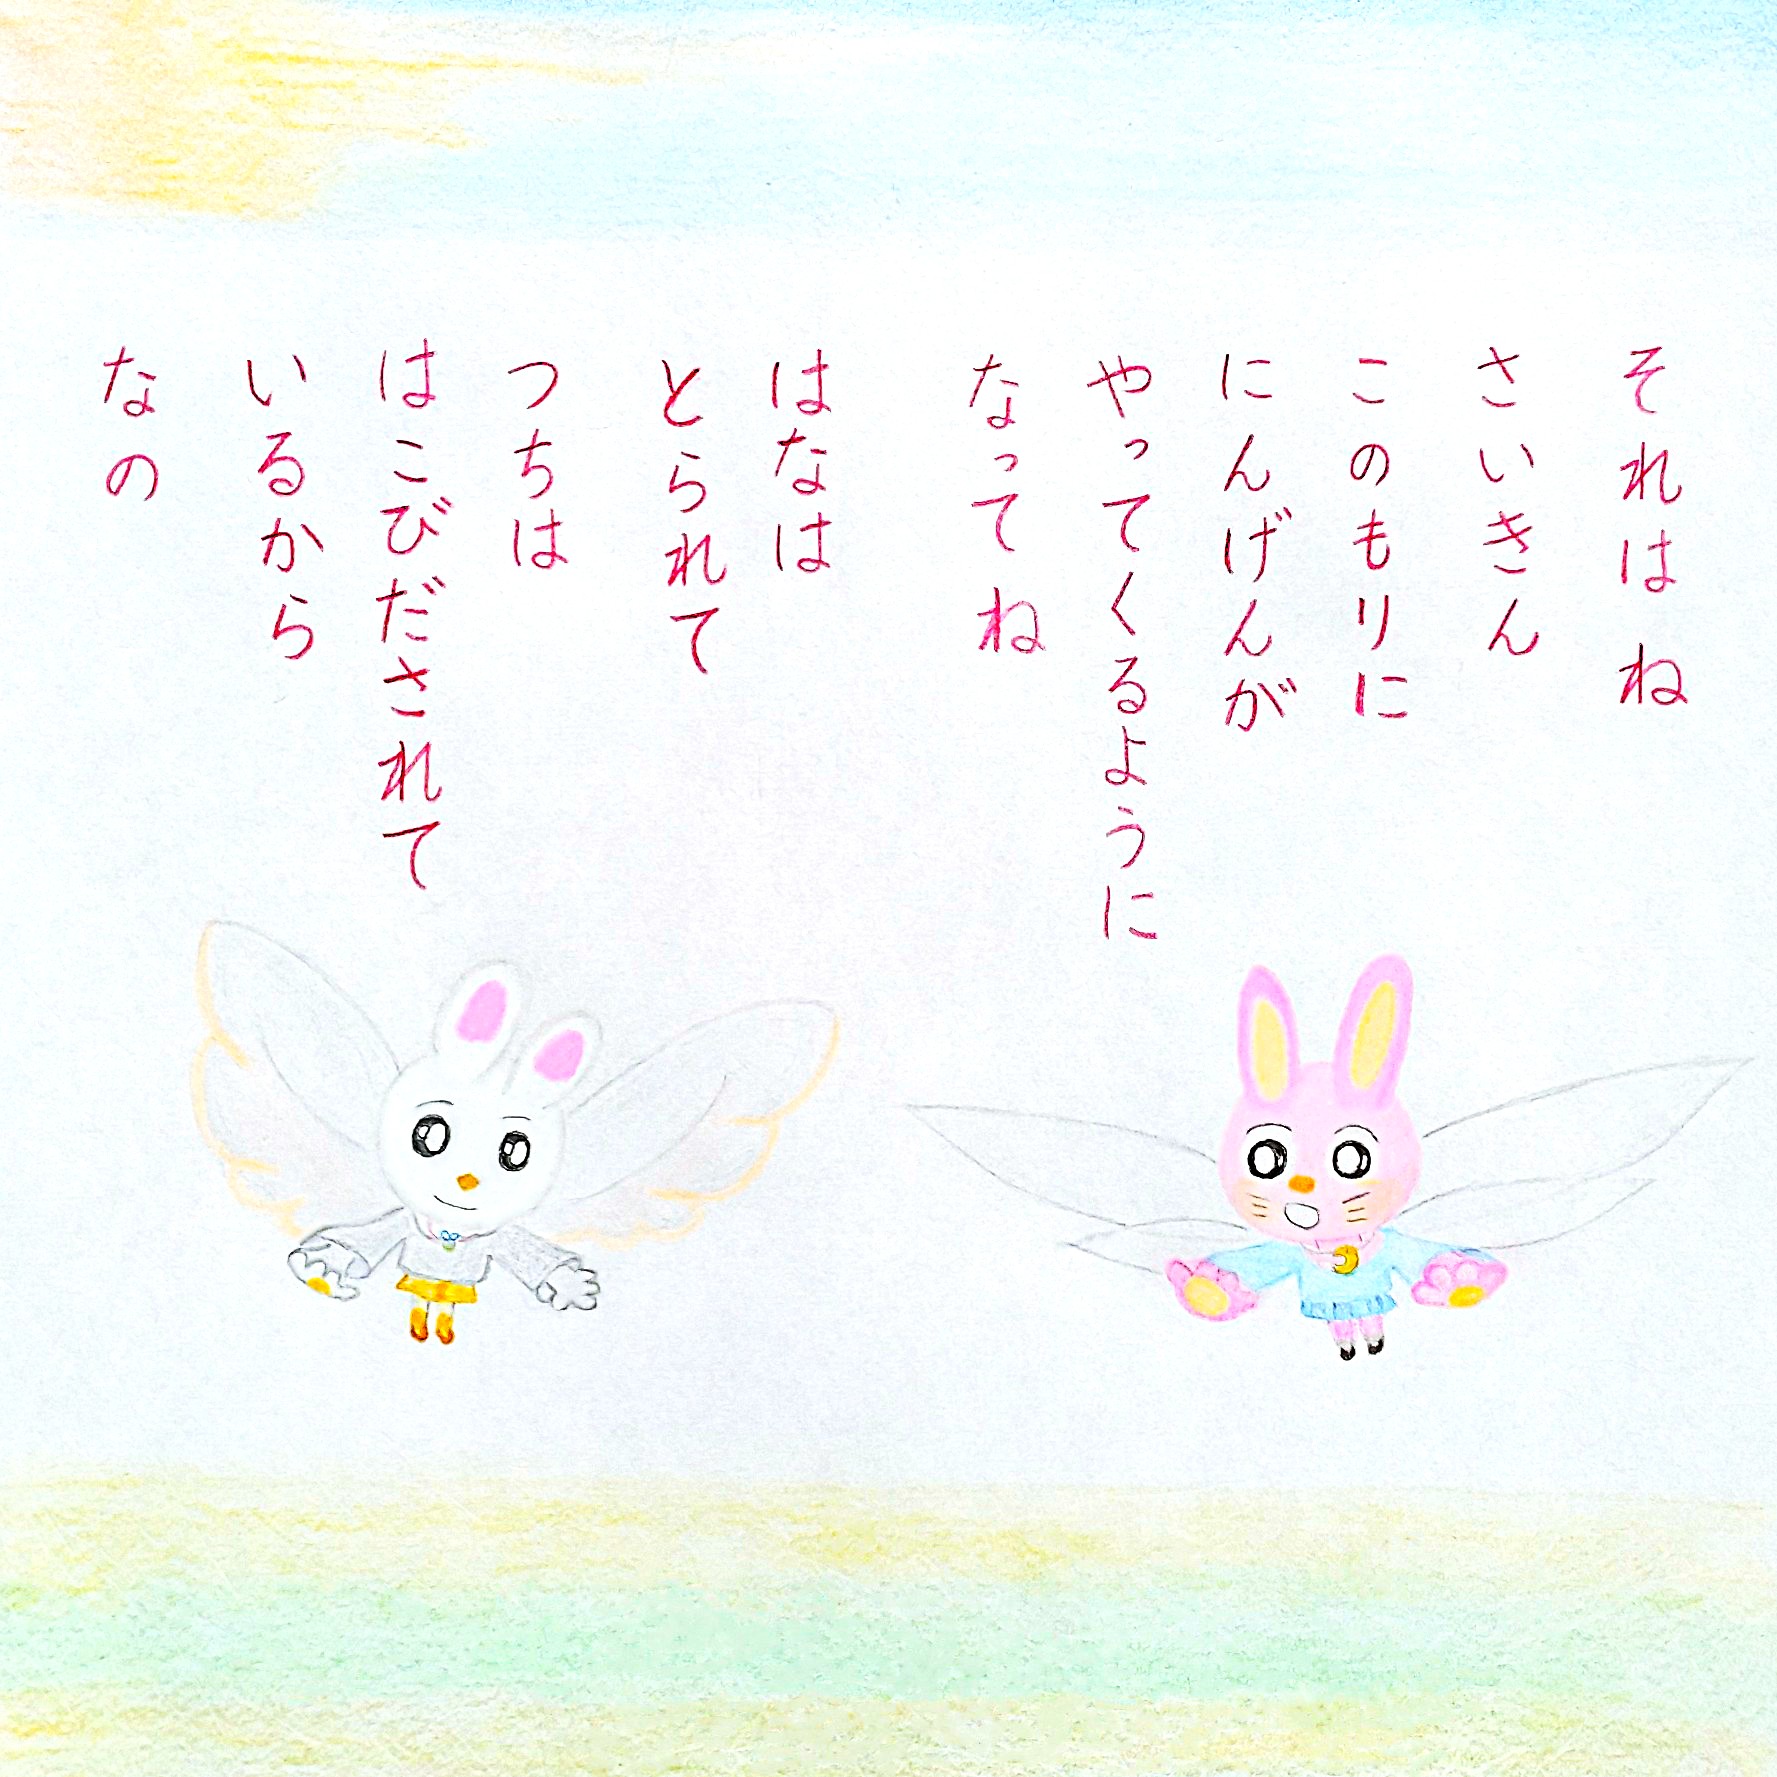 それはね
さいきん
このもりに
にんげんが
やってくるように
なってね
はなは
とられて
つちは
はこびだされて
いるから
なの